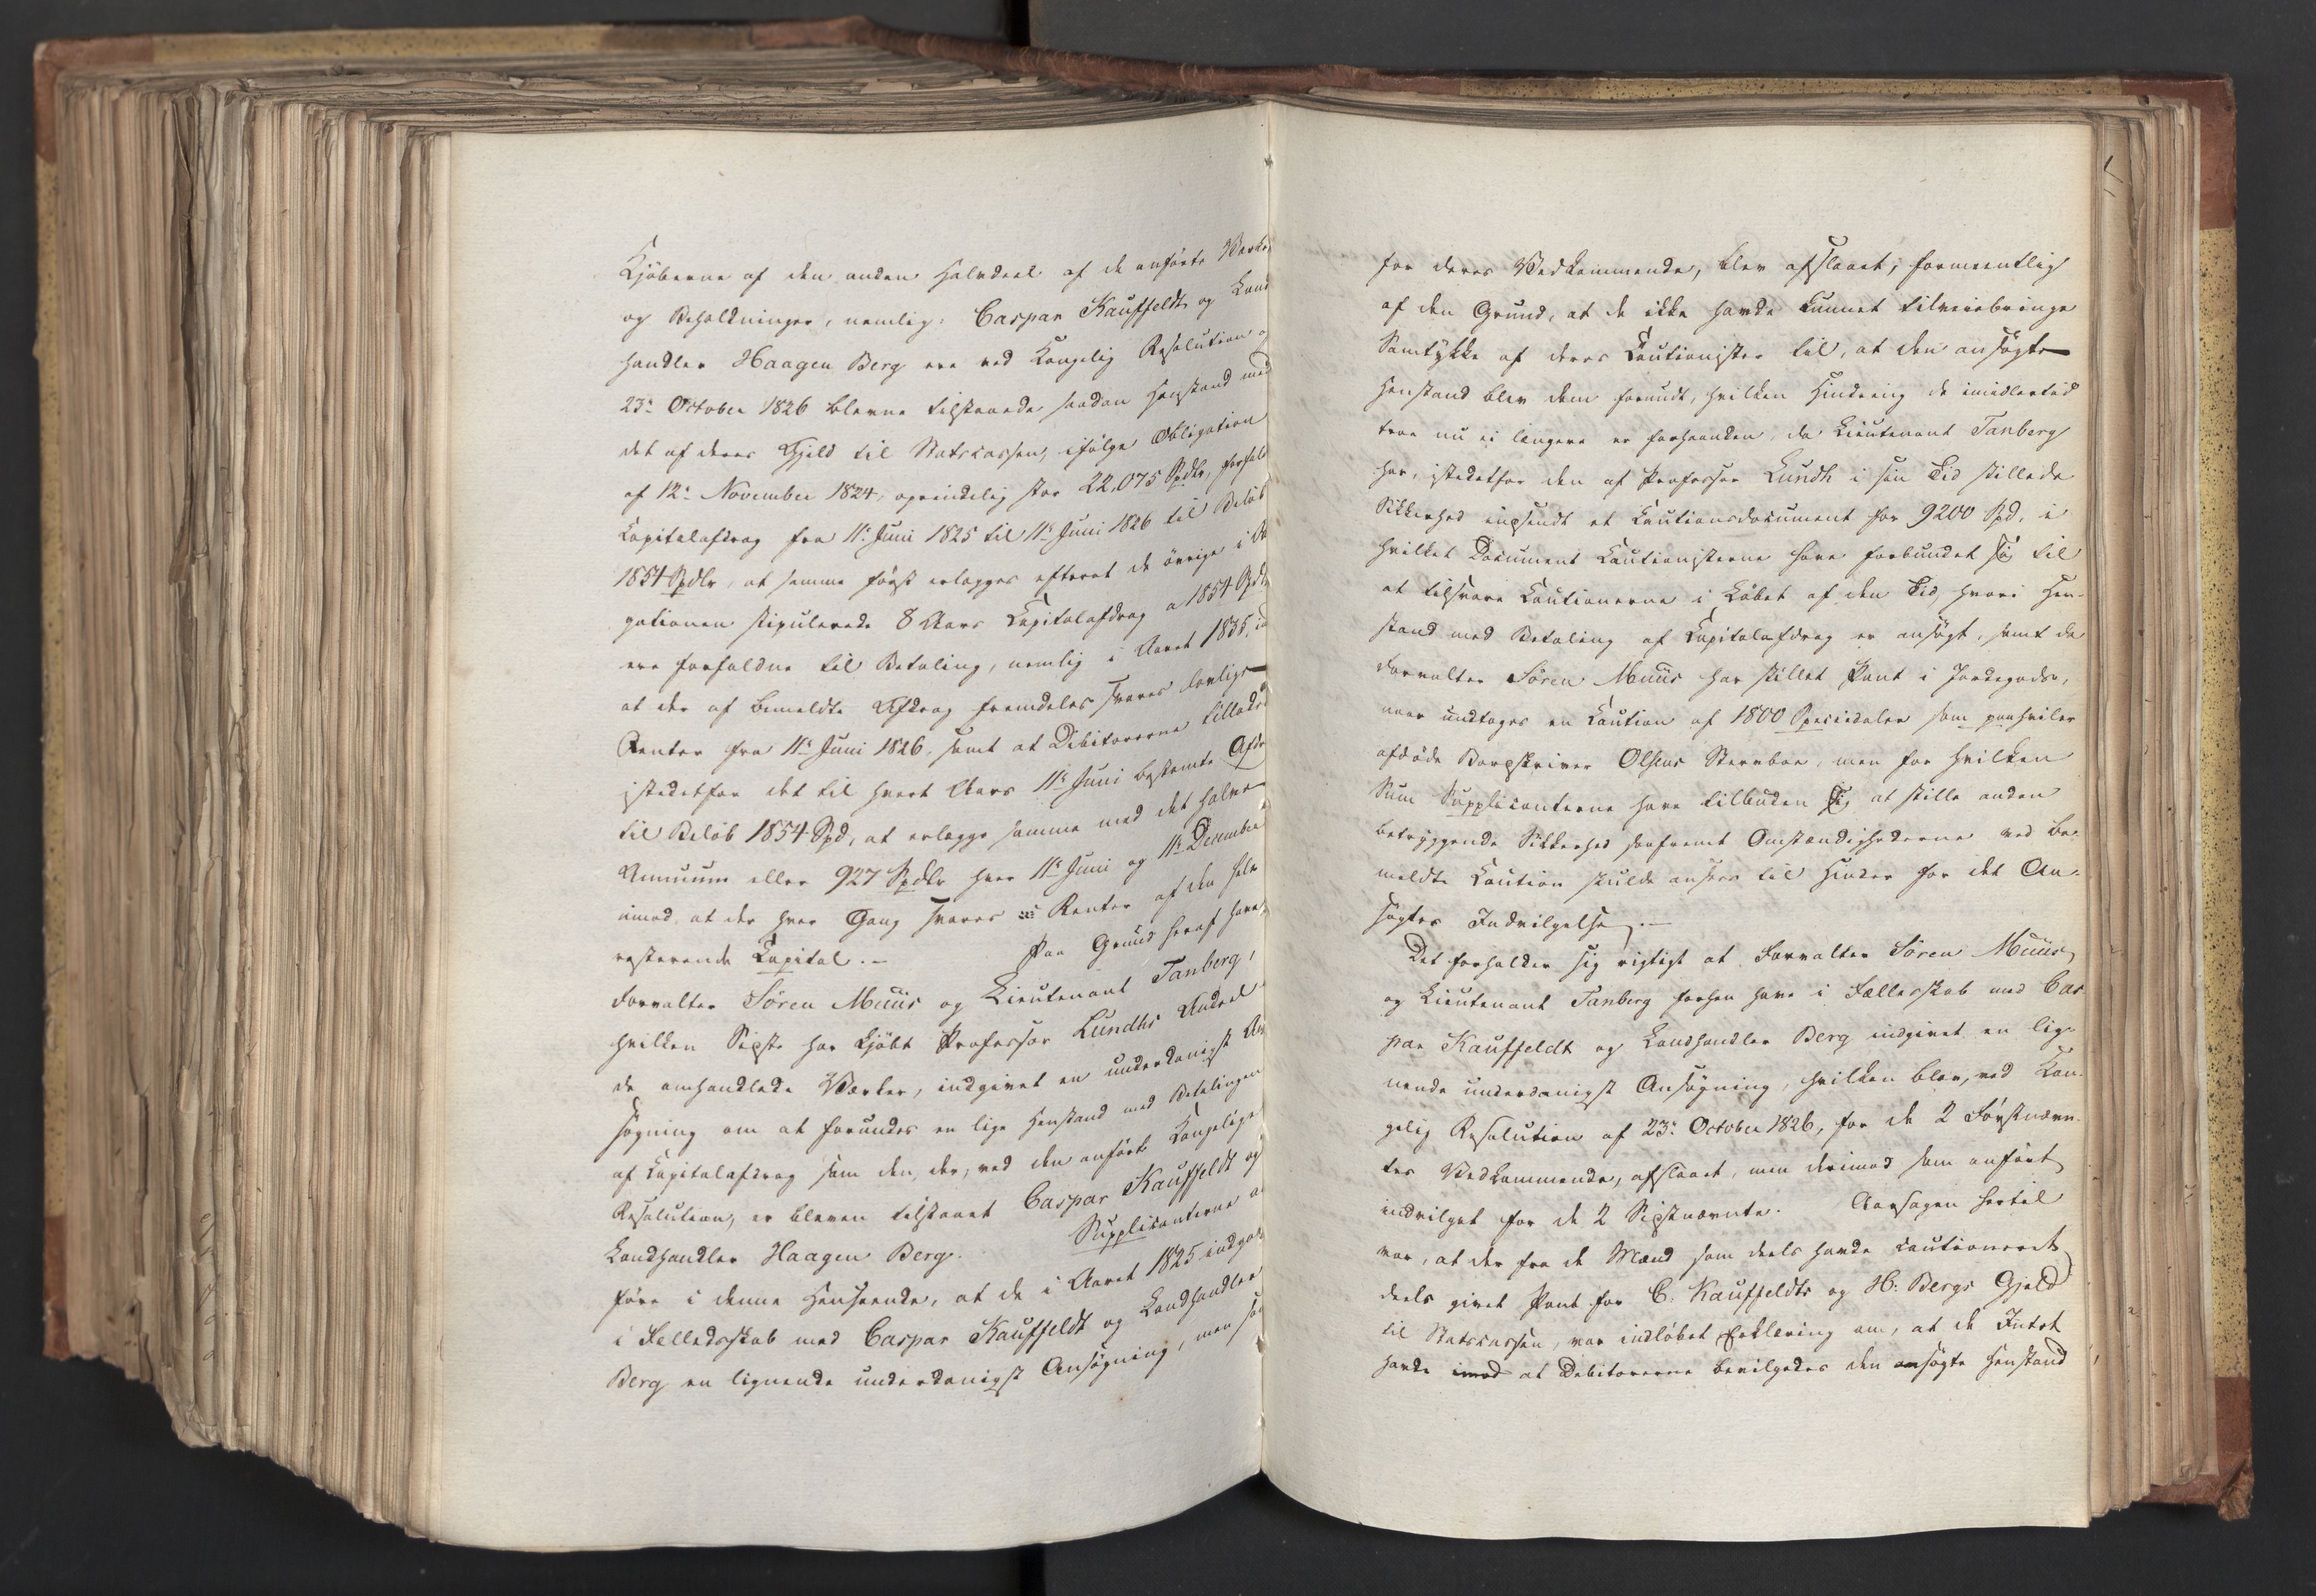 Kjøberne af den anden Halvdeel af de anførte Værker
og Beholdninger, nemlig: Caspar Kauffeldt og Land
handler Haagen Berg ere ved Kongelig Resolution af
23de October 1826 blevne tilstaaede saadan Henstand med
det af deres Gjeld til Statscassen, ifølge Obligation
af 12te November 1824, oprindelig stor 22,075 Spdlr, forfald
Capitalafdrag fra 11te Juni 1825 til 11te Juni 1826 til Beløb
1854 Spdlr, at samme først erlægges efterat de øvrige i Ob
gationen stipulerede 8 Aars Capitalafdrag a 1854 Spdlr
ere forfaldne til Betaling, nemlig i Aaret 1835, im
at der af bemeldte Afdrag fremdeles svares lovlige
Renter fra 11te Juni 1826, samt at Debitorerne tillades
istedetfor det til hvert Aars 11te Juni bestemte Afdr
til Beløb 1854 Spd, at erlægge samme med det halve
Annuum eller 927 Spdlr hver 11te Juni og 11te December
imod at der hver Gang svares Renter af den hele
resterende Capital. – Paa Grund heraf have
Forvalter Sören Muüs og Lieutenant Tanberg,
hvilken Sidste har kjøbt Professor Lundhs Andeel
de omhandlede Værker, indgivet en underdanigst An
søgning om at forundes en lige Henstand med Betalingen
af Capitalafdrag som den, der, ved den anførte Kongelige
Resolution, er bleven tilstaaet Caspar Kauffeldt og
Landhandler Haagen Berg. Supplicanterne an
føre i denne Henseende, at de i Aaret 1825 indgav
i Felledsskab med Caspar Kauffeldt og Landhandler
Berg en lignende underdanigst Ansøgning, men saa
for deres Vedkommende, blev afslaaet, formeentlig
af den Grund, at de ikke havde kunnet tilveiebringe
Samtykke af deres Cautionister til, at den ansøgte
Henstand blev dem forundt, hvilken Hindring de imidlertid
troe nu ei længere er forhaanden, da Lieutenant Tanberg
har, istedetfor den af Professor Lundh i sin Tid stillede
Sikkerhed indsendt et Cautionsdocument for 9200 Spd, i
hvilket Document Cautionisterne have forbundet sig til
at tilsvare Cautionerne i Løbet af den Tid, hvori Hen-
stand med Betaling af Capitalafdrag er ansøgt, samt da
Forvalter Sören Muüs har stillet Pant i Jordegods,
naar undtages en Caution af 1800 Speciedaler som paahviler
afdøde Borgskriver Olsens Sterboe, men for hvilken
Sum Supplicanterne have tilbuden sig at stille anden
betryggende Sikkerhed saafremt Omstændighederne ved be-
meldte Caution skulde ansees til Hinder for det An-
søgtes Indvilgelse. –
Det forholder sig rigtigt at Forvalter Sören Muüs
og Lieutenant Tanberg forhen have i Fællesskab med Cas-
par Kauffeldt og Landhandler Berg indgivet en lig-
nende underdanigst Ansøgning, hvilken blev, ved Kon-
gelig Resolution af 23de October 1826, for de 2 Førstnævn-
tes Vedkommende, afslaaet, men derimod som anført
indvilget for de 2 Sidstnævnte. Aarsagen hertil
var, at der fra de Mænd som deels havde cautioneret
deels givet Pant for C. Kauffeldts og H. Bergs Gjeld
til Statscassen, var indløbet Erklæring om, at de Intet
havde imod at Debitorerne bevilgedes den ansøgte Henstand